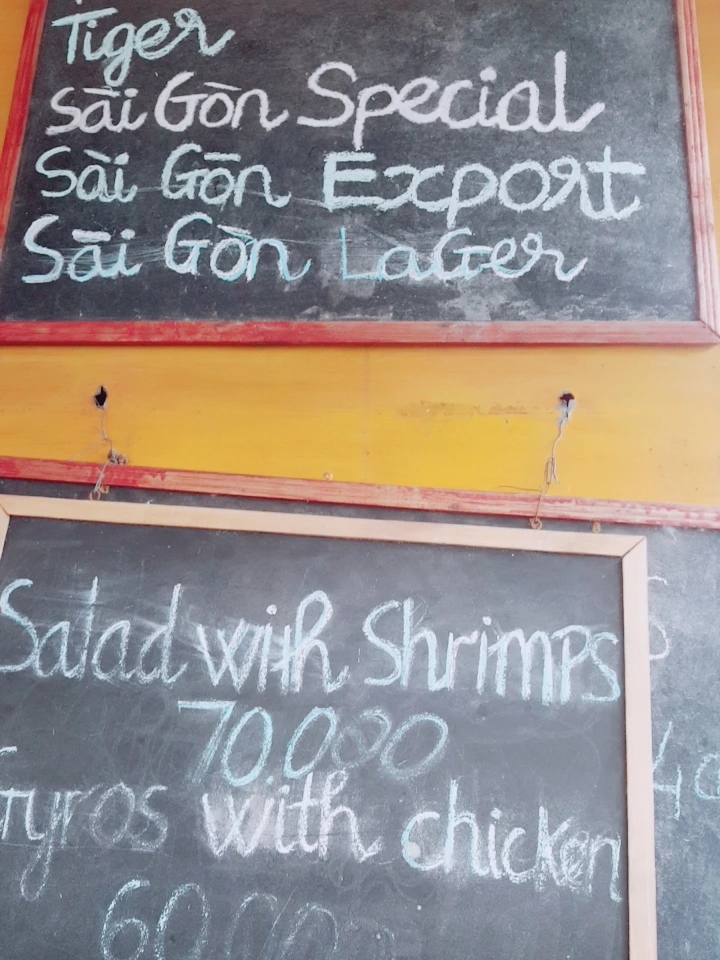 Tiger
Sài Gòn Special
Sài Gòn Export
Sài Gòn LaGer
Salad with Shrimps
70.000
Gyros with chicken
60.000